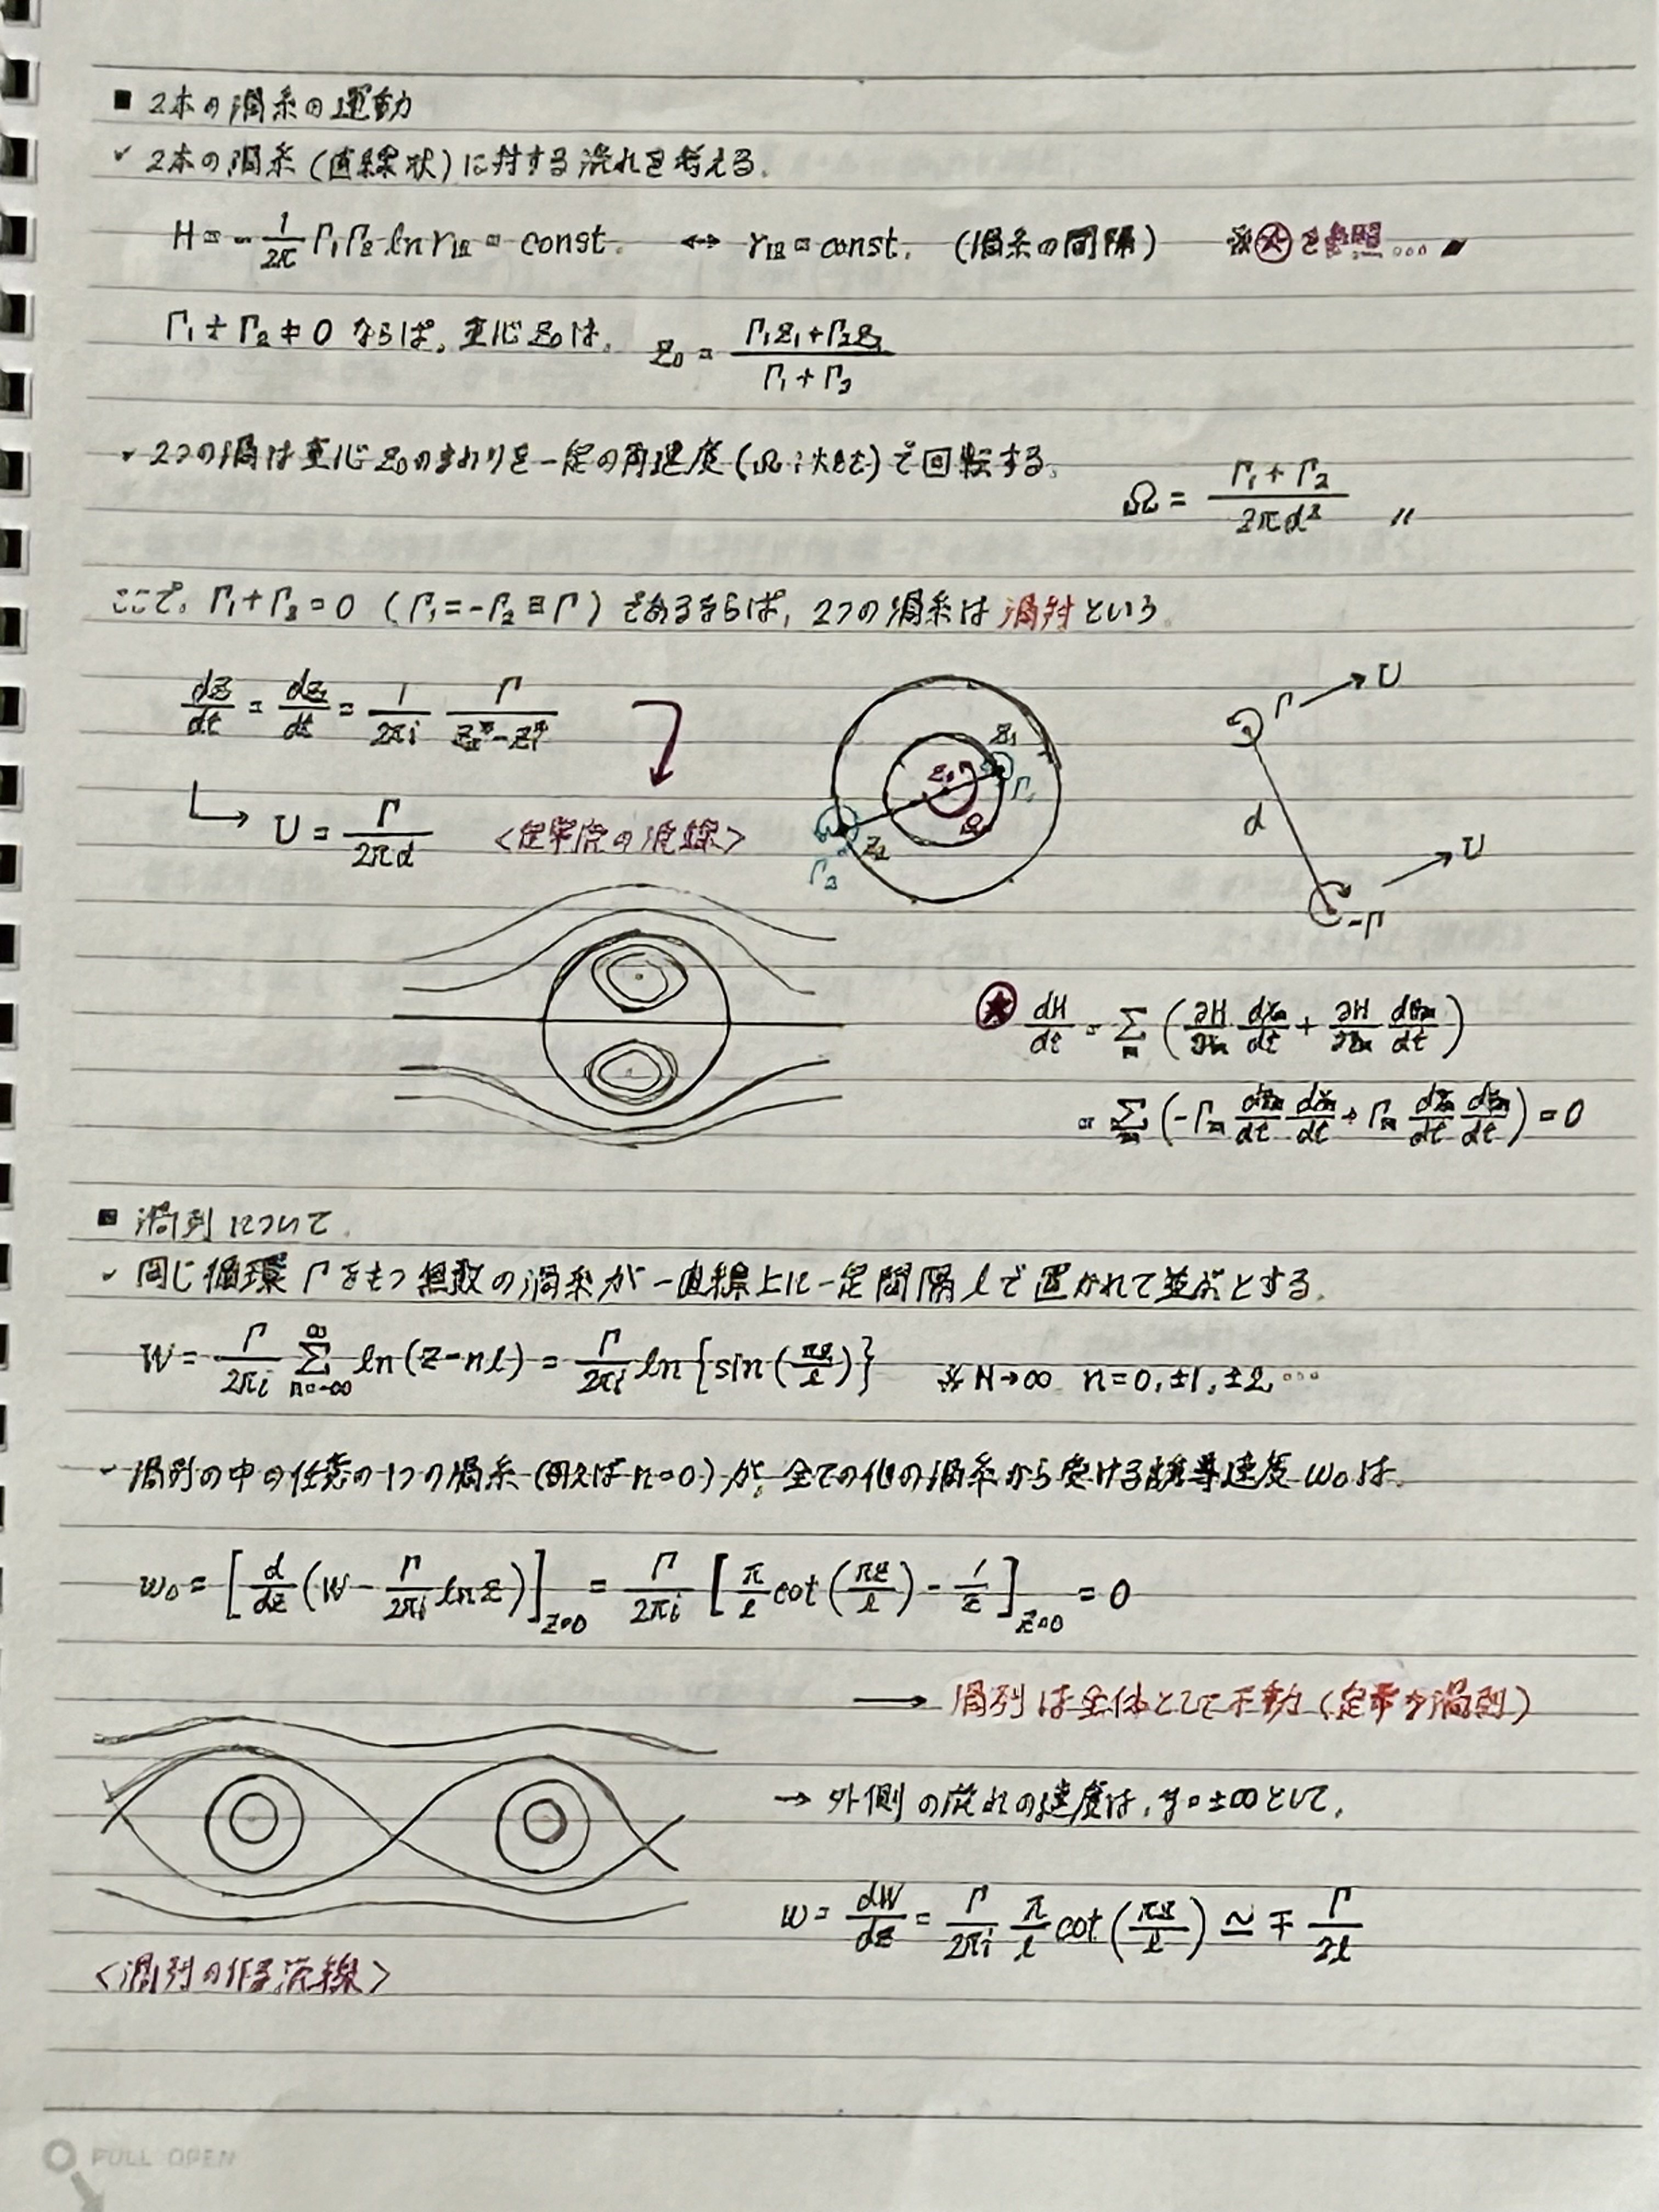 ■ 2本の渦糸の運動
✓ 2本の渦糸(直線状)に対する流れを考える.
H = -1/2π Γ₁Γ₂ ln r₁₂ = const. ↔ r₁₂ = const. (渦糸の間隔) ※★を参照...
Γ₁ + Γ₂ ≠ 0 ならば, 重心 z₀ は, z₀ = (Γ₁z₁+Γ₂z₂)/(Γ₁+Γ₂)
✓ 2つの渦は重心 z₀ のまわりを一定の角速度(Ω)で回転する.
Ω = (Γ₁+Γ₂)/2πd² 〃
ここで, Γ₁+Γ₂=0 (Γ₁=-Γ₂≡Γ) であるならば, 2つの渦糸は渦対という
dz/dt = dz₂/dt = 1/2πi Γ/(z₂*-z₁*)
U = Γ/2πd <定常流の流線>
z₁ z₀ Γ₁ Ω z₂ Γ₂
Γ → U
d
→ U
-Γ
★ dH/dt = Σ (∂H/∂xₘ dxₘ/dt + ∂H/∂yₘ dyₘ/dt)
= Σ (-Γₘ dyₘ/dt dxₘ/dt + Γₘ dxₘ/dt dyₘ/dt) = 0
■ 渦列について.
✓ 同じ循環 Γ をもつ無数の渦糸が一直線上に一定間隔 l で置かれて並ぶとする.
W = Γ/2πi Σ[n=-∞,∞] ln(z-nl) = Γ/2πi ln{sin(πz/l)} ※N→∞ n=0, ±1, ±2, …
✓ 渦列の中の任意の1つの渦糸(例えば n=0)が, 全ての他の渦糸から受ける誘導速度 w₀ は.
w₀ = [d/dz (W - Γ/2πi ln z)]z=0 = Γ/2πi [π/l cot(πz/l) - 1/z]z=0 = 0
→ 渦列は全体として不動(定常な渦列)
→ 外側の流れの速度は, y=±∞として,
w = dW/dz = Γ/2πi π/l cot(πz/l) ≃ ∓ Γ/2l
<渦列の作る流線>
FULL OPEN